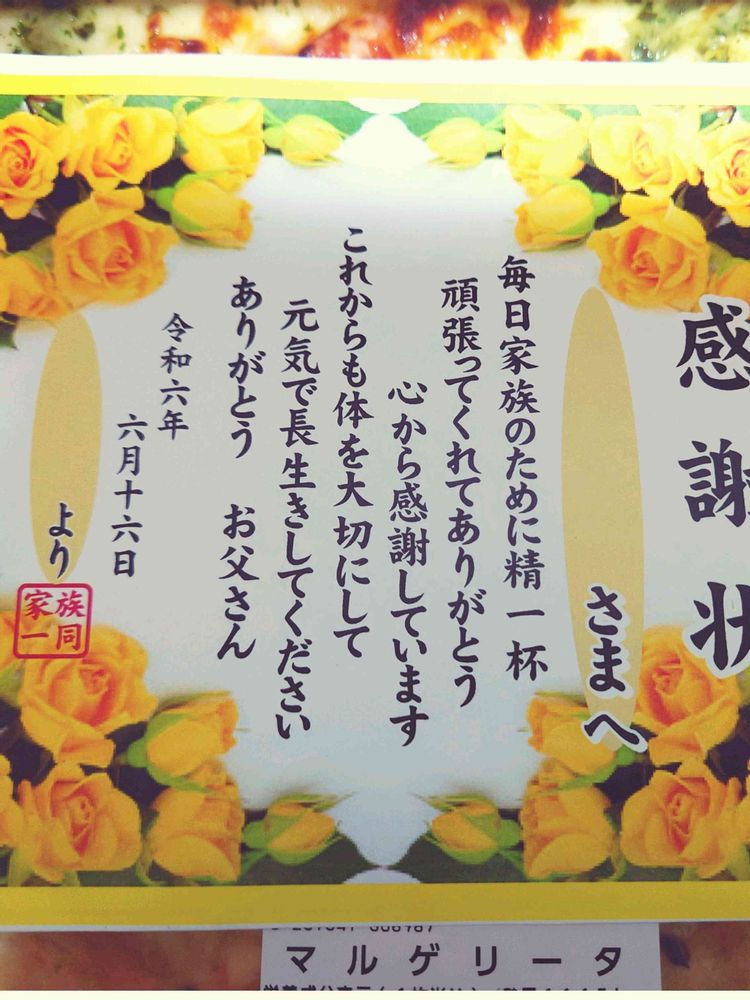 感謝状
さまへ
毎日家族のために精一杯
頑張ってくれてありがとう
心から感謝しています
これからも体を大切にして
元気で長生きしてください
ありがとう　お父さん
令和六年
六月十六日
より
家族
一同
マルゲリータ